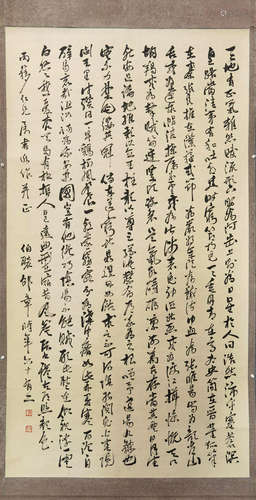 天地有正氣雜然賦流形下則為河岳上則為日星於人曰浩然沛乎塞蒼溟
皇路當清夷含和吐明庭時窮節乃見一一垂丹青在齊太史簡在晉董狐筆
在秦張良椎在漢蘇武節為嚴將軍頭為嵇侍中血為張睢陽齒為顏常山
舌或為遼東帽清操厲冰雪或為出師表鬼神泣壯烈或為渡江楫慷慨吞
胡羯或為擊賊笏逆豎頭破裂是氣所磅礴凜烈萬古存當其貫日月生
死安足論地維賴以立天柱賴以尊三綱實係命道義為之根嗟予遘陽九隸也
實不力楚囚纓其冠傳車送窮北鼎鑊甘如飴求之不可得陰房闃鬼火春院
閟天黑牛驥同一皂雞棲鳳凰食一朝蒙霧露分作溝中瘠如此再寒暑百沴自
辟易哀哉沮洳場為我安樂國豈有他繆巧陰陽不能賊顧此耿耿在仰視浮雲
白悠悠我心悲蒼天曷有極哲人日已遠典刑在夙昔風簷展書讀古道照顏色
仁兄屬書即作正 伯褧邵章時年六十有二